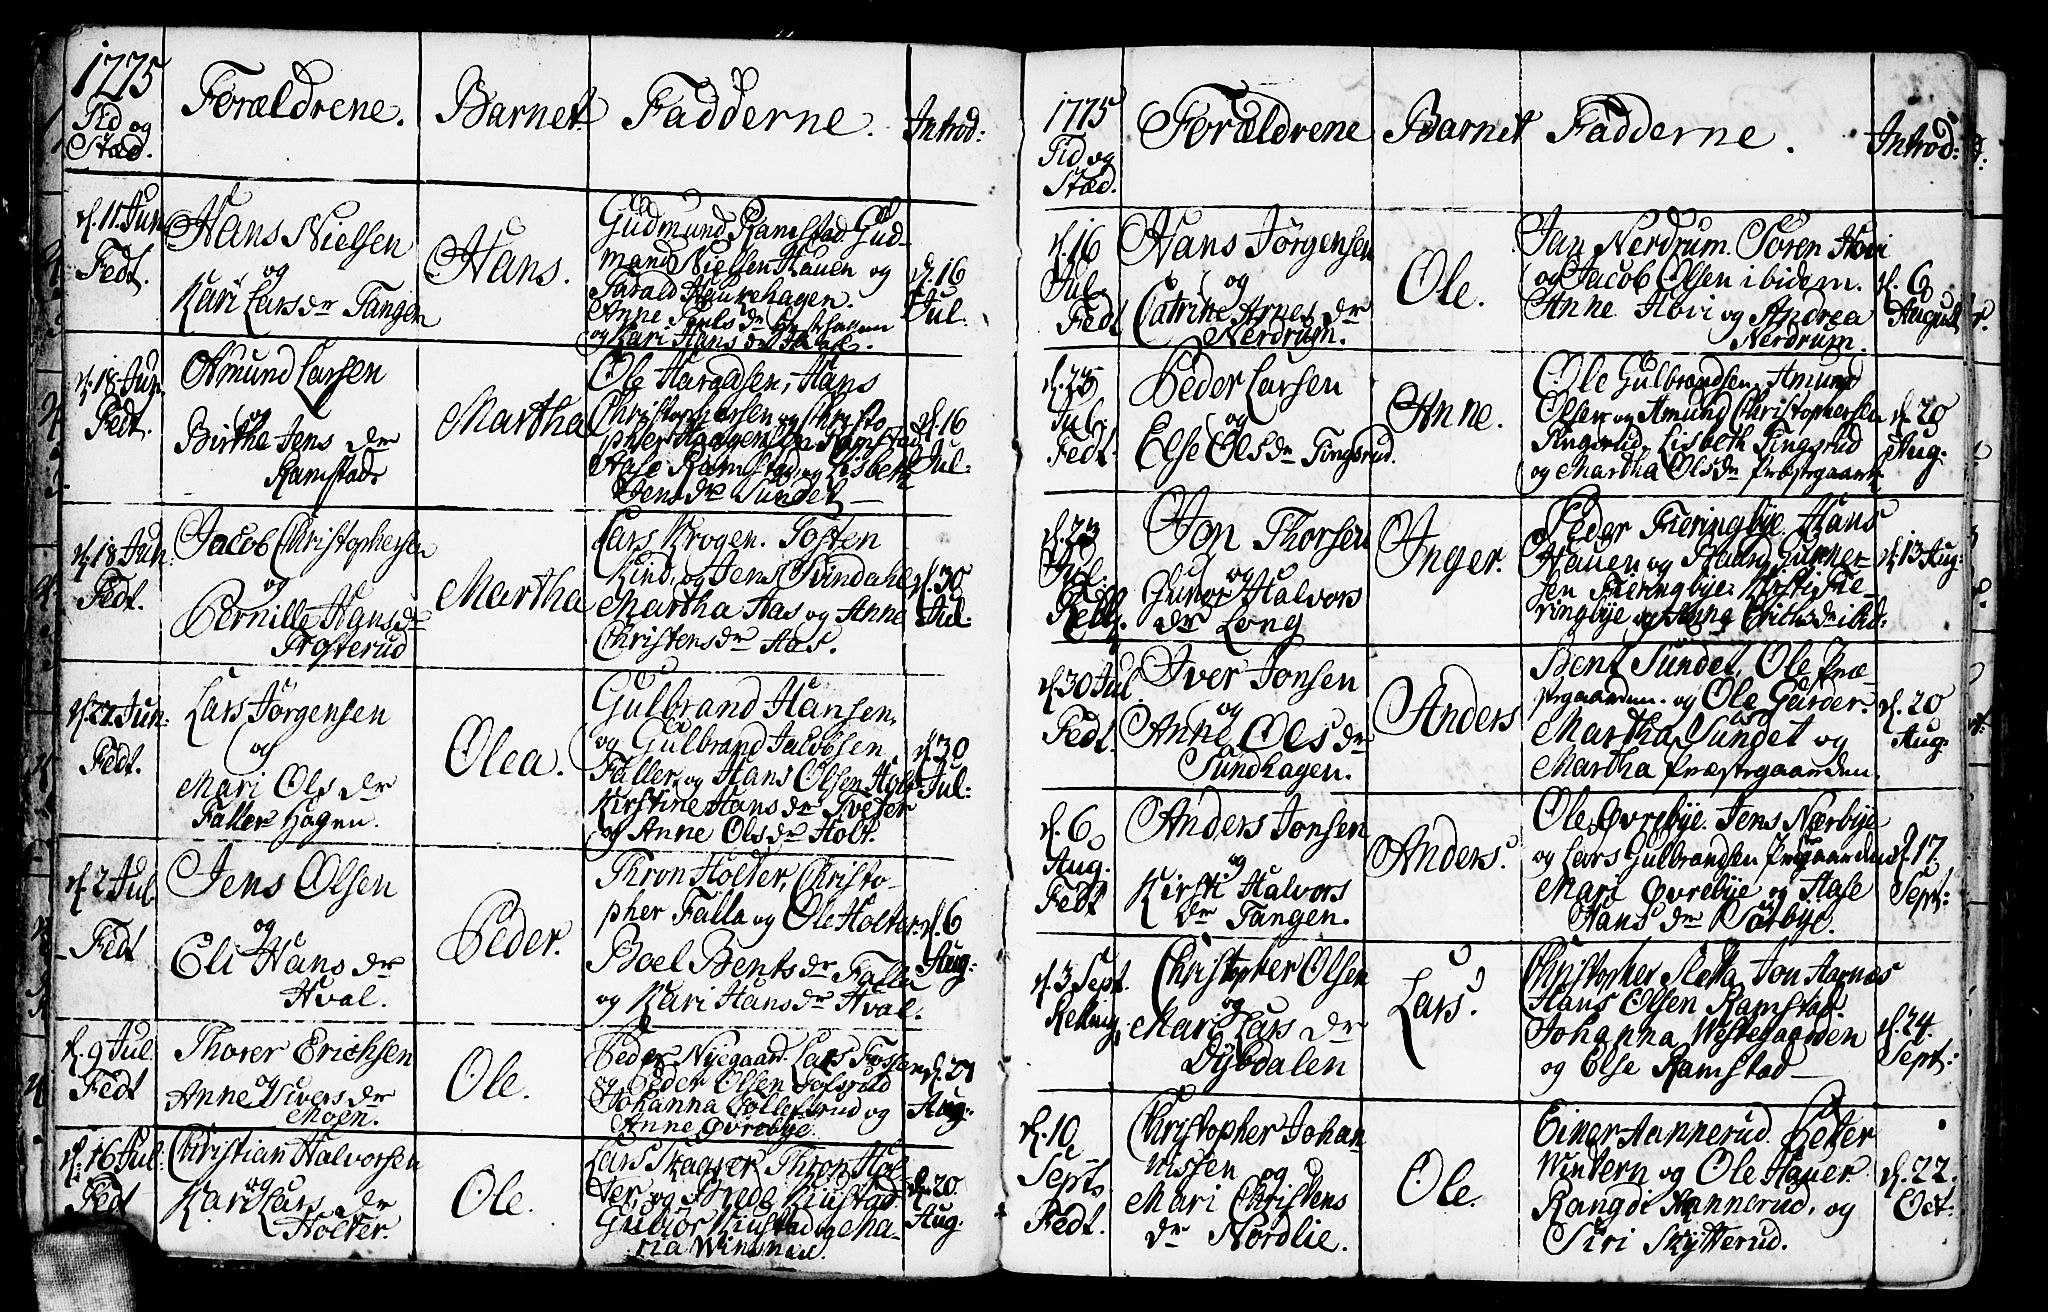 1775
Tid og
Stæd.
Forældrene.
Barnet.
Fadderne.
Introd:
d. 11. Jun.
Fedt.
Hans Nielsen
og
Kari Lars dr Tangen
Hans.
Gudmund Ramstad. Gud-
mand Nielsen Hauen og
Harald Haukehagen.
Anne
og Kari Hans dr
d. 16
Jul.
d. 18. Jun.
Fedt.
Amund Larsen
og
Birthe Jens dr
Ramstad
Martha
Ole Hans
Christophersen og Christo
pher Haagen
Aase Ramstad og Lisbeth
Jens dr Sundet
d. 16
Jul:
d. 18. Jun:
Fedt.
Jacob Christophersen
og
Pernille Hans dr
Trosterud
Martha
Lars Krogen. Tosten
Kind og Jens Svindahl
Martha Aas og Anne
Christens dr Aas.
d. 30
Jul.
d. 22 Jun:
Fedt.
Lars Jörgensen
og
Mari Ols dr
Faller Hagen.
Olea.
Gulbrand Hansen,
og Gulbrand
Faller og Hans Olsen Holt
Kirstine Hans dr Tveter
og Anne Ols dr Holt.
d. 30
Jul:
d. 2 Jul.
Fedt
Jens Olsen
og
Eli Hans dr
Hval.
Peder.
Thron Holter, Christo-
pher Falla og Ole Holter.
Boel Bents dr Falla
og Kari Hans dr Hval.
d. 6
Aug:
d. 9 Jul.
Fedt
Thorer Erichsen
og
Anne Sivers dr
Moen.
Ole.
Peder Nyegaard. Lars Fossen
og Peder Olsen
Johanna Tollefsrud og
Anne Ovrebye.
Aug:
d. 16 Jul:
Fedt
Christian Halvorsen
og
Kari Lars dr
Holter.
Ole.
Lars Skaarer, Thron Hol-
ter, og
Gubiör og Ma-
ria
d. 20
Aug:
1775
Tid og
Stæd.
Forældrene
Barnet
Fadderne.
Introd:
d. 16
Jul.
Fedt
Hans Jörgensen
og
Catrine Arnes dr
Nerdrum.
Ole.
Jan Nerdrum. Sören Hovi
og Jacob Olsen ibidem.
Anne Hovi og Andrea
Nerdrum.
d. 6
August
Jul.
Fedt.
Peder Larsen
og
Else Ols dr Tingsrud.
Anne.
Ole Gulbrandsen, Amund
Olsen og Amund Christophersen
Lisbeth Tingsrud
og Martha Ols dr Præstegaard
d. 20
Aug.
d. 23
Jul.
Jon Thorsen
og
Gunor Halvors
dr Long
Inger.
Peder Fieringbye. Hans
Hauen og Haagen Gunner
sen Fieringbye. Fie-
ringbye og Anne Erichs dr ibid:
d. 13 Aug:
d. 30 Jul
Fedt.
Iver Jonsen
og
Anne Ols dr
Sundhagen.
Anders
Bent Sundet, Ole Præ-
stegaarden. og Ole Garder.
Martha Sundet og
Martha Præstegaarden.
d. 20
Aug.
d. 6
Aug.
Fedt
Anders Jonsen
og
Kirsti Halvors
dr Tangen.
Anders.
Ole Ovrebye. Jens Nærbye
og Lars Gulbrandsen
Mari Ovrebye og Aase
Hans dr Sörbye.
d. 17.
Sept:
d. 3 Sept.
Christopher Olsen
og
Mari Lars dr
Dybdalen
Lars.
Christopher Sletta Jon Aarnæs
Hans Olsen Ramstad.
Johanna Westegaarden
og Else Ramstad
d. 24.
Sept:
d. 10
Sept.
Fedt.
Christopher Johan
nissen
og
Mari Christens
dr Nordlie.
Ole.
Einer Hannerud. Peter
Wintern og Ole Hauer.
Rangdi Hannerud, og
Siri Skytterud.
d. 22.
Oct: